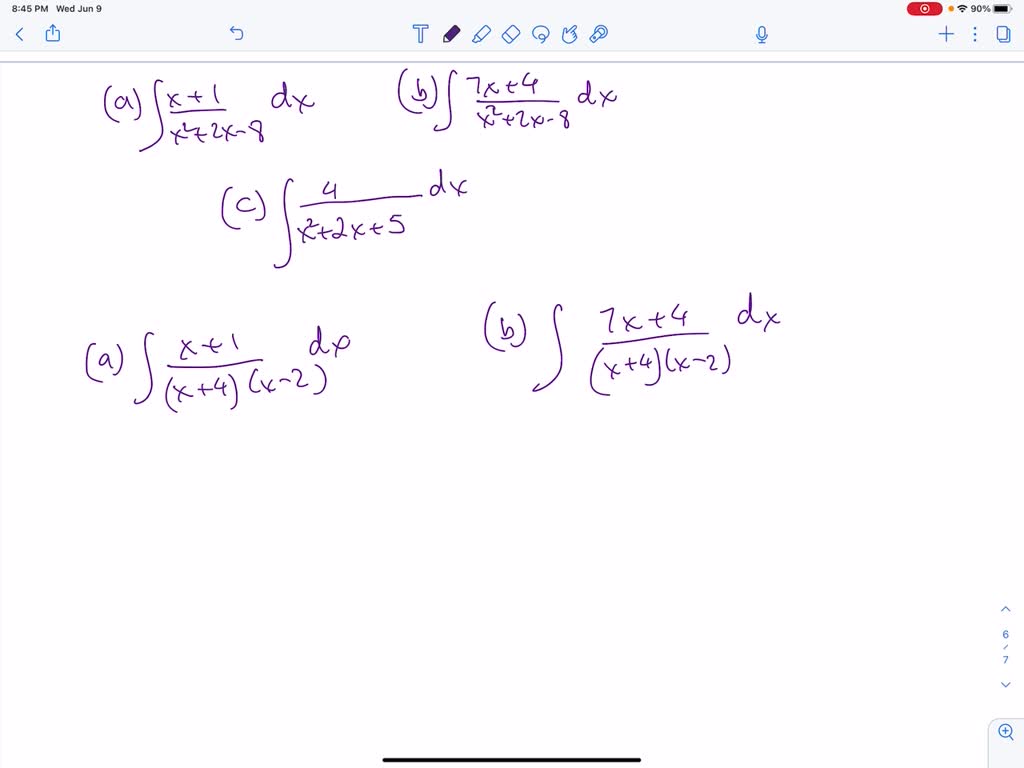 8:45 PM Wed Jun 9
90%
T
(a) ∫ x+1 / x²+2x-8 dx (b) ∫ 7x+4 / x²+2x-8 dx
(c) ∫ 4 / x²+2x+5 dx
(a) ∫ x+1 / (x+4)(x-2) dx (b) ∫ 7x+4 / (x+4)(x-2) dx
6
/
7